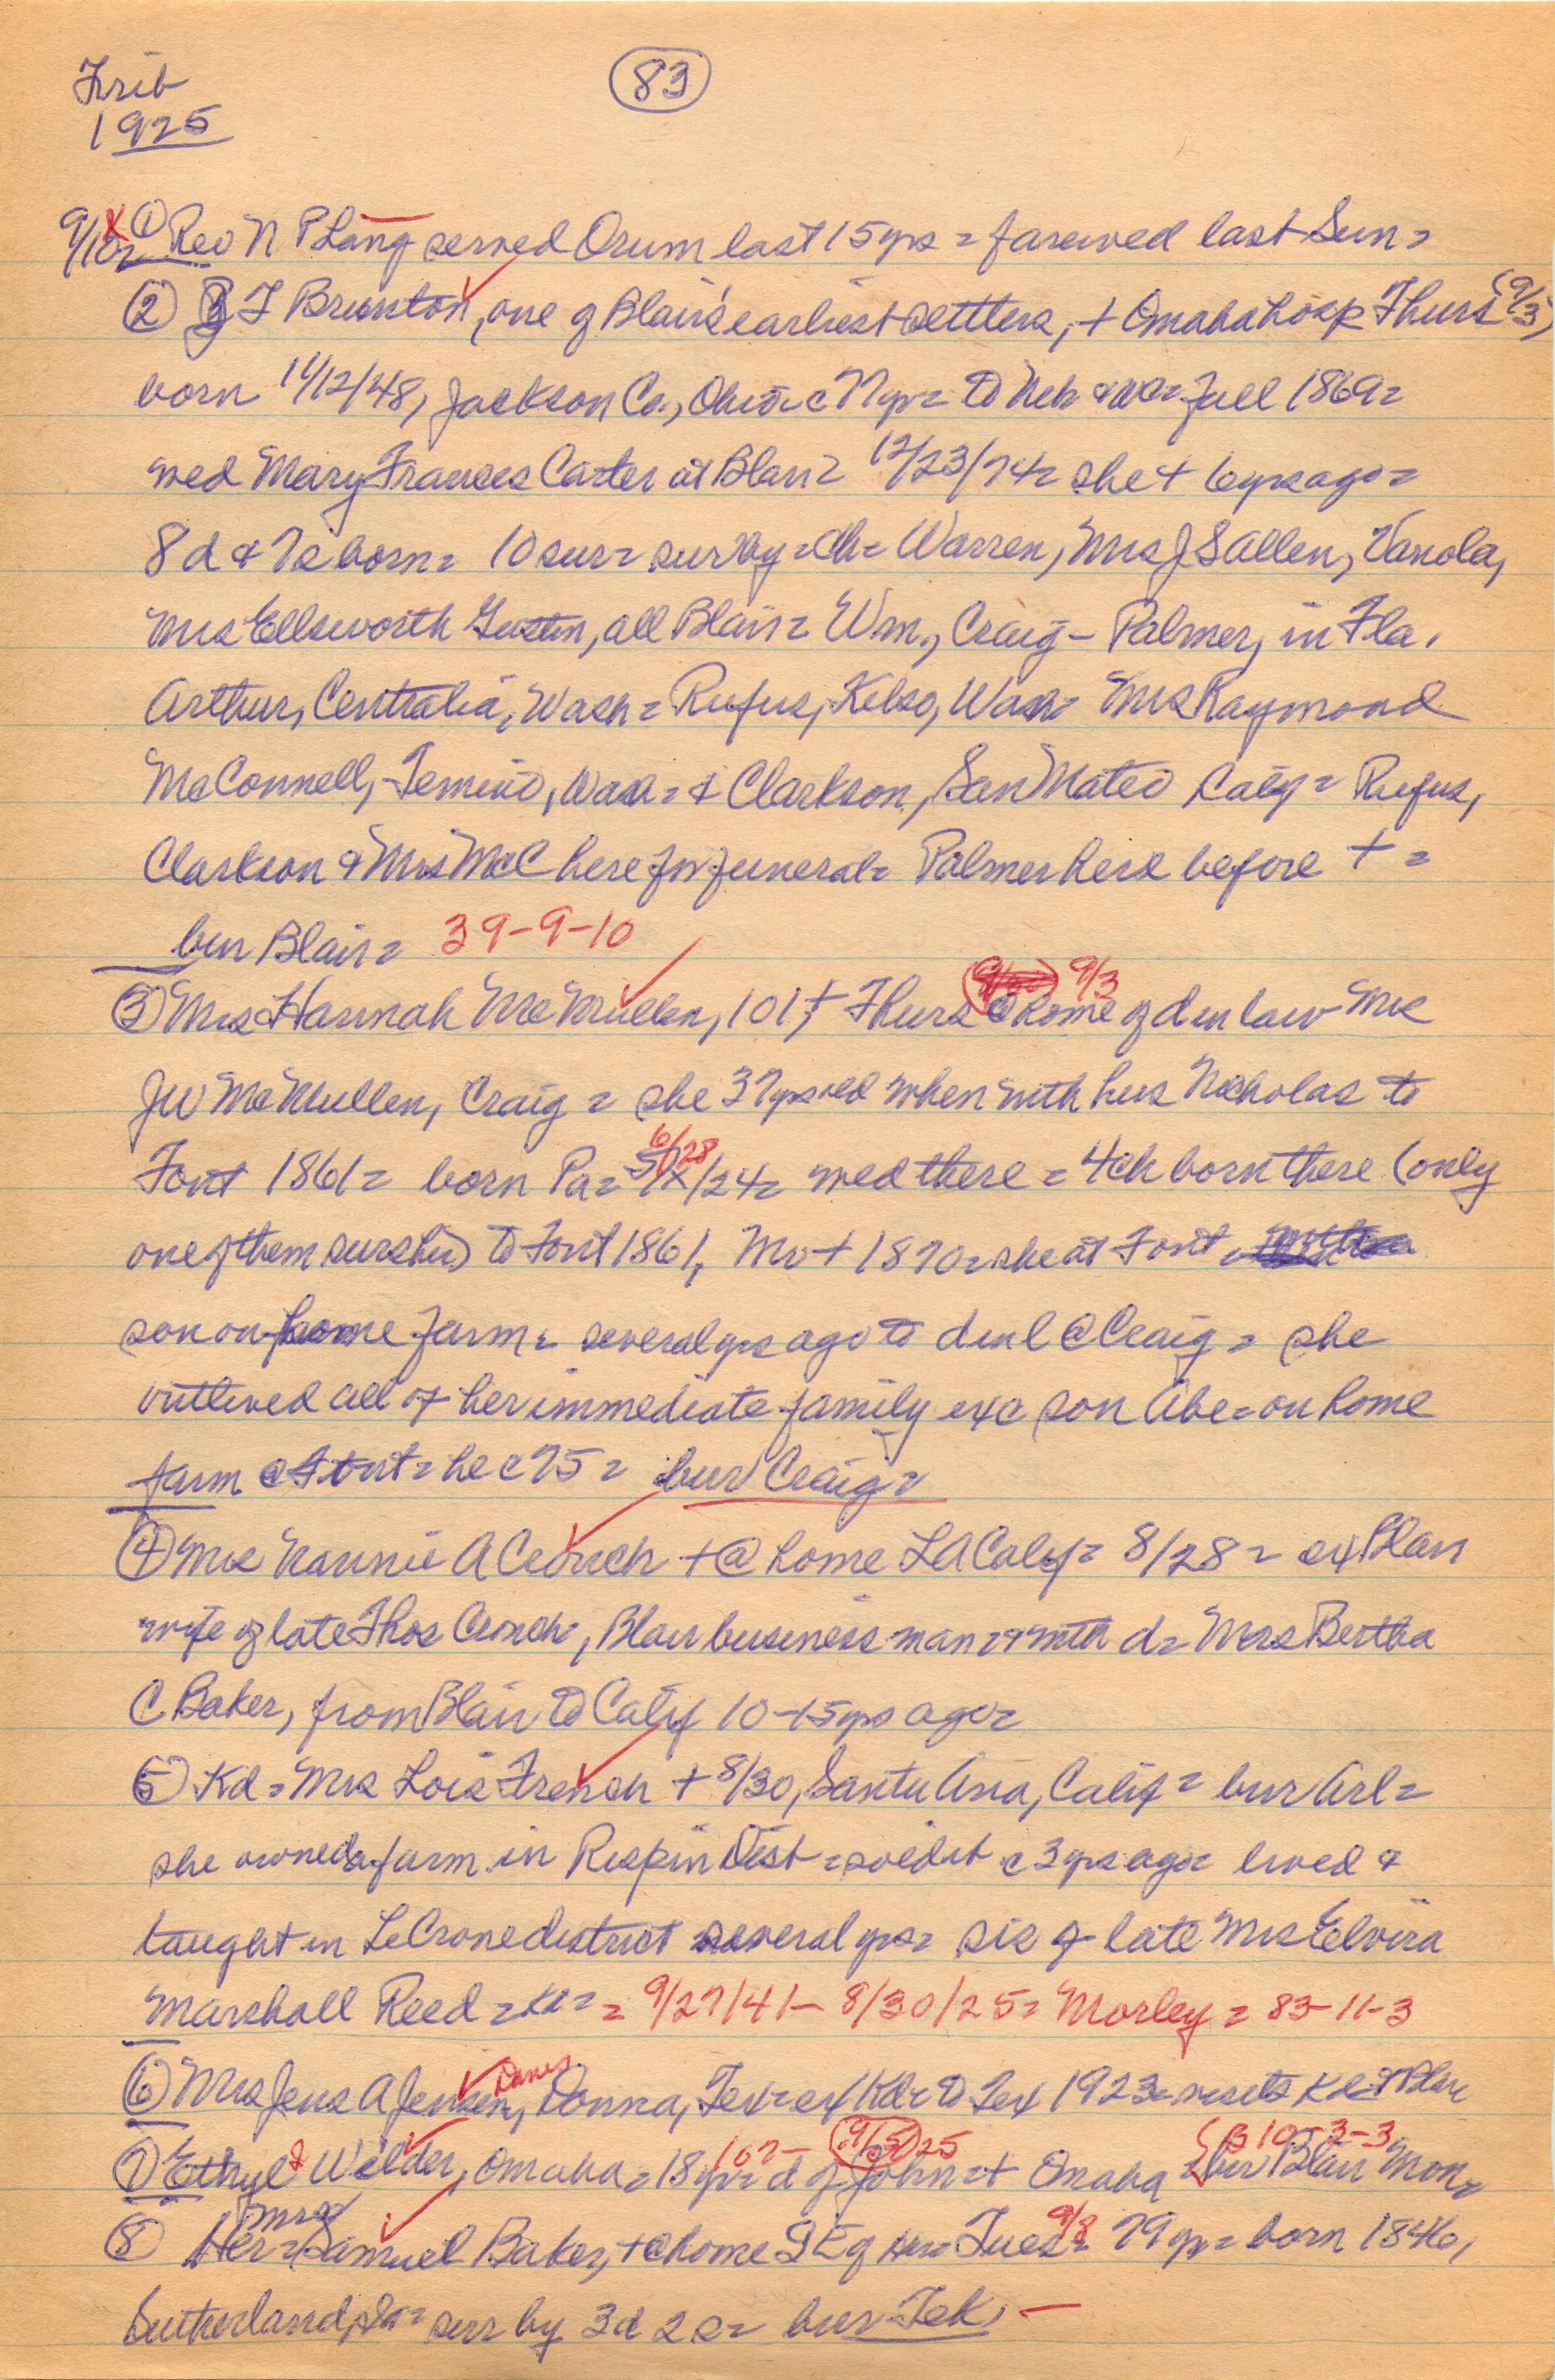 Trib
83
1925
9/10= ① Rev N P Lang served Orum last 15 yrs = farewed last Sun =
② T Brunton, one of Blair's earliest settlers, + Omaha hosp Thurs (9/3)
born 11/12/48, Jackson Co., Ohio = c 77 yr = to Neb & = fall 1869 =
wed Mary Frances Carter at Blair = 12/23/74 = she + 6 yrs ago =
8 d & 7 s born = 10 sur = sur by = ch = Warren, Mrs J S Allen, Vanola,
Mrs Ellsworth Gustin, all Blair = Wm., Craig - Palmer, in Fla.
Arthur, Centralia, Wash = Rufus, Kelso, Wash = Mrs Raymond
McConnell, Tenino, Wash = & Clarkson, San Mateo Calif = Rufus,
Clarkson & Mrs McC here for funeral = Palmer here before + =
bur Blair = 39-9-10
③ Mrs Hannah McMullen, 101, + Thurs 9/3 @ home of d in law Mrs
JW McMullen, Craig = she 37 yrs old when with hus Nicholas to
Font 1861 = born Pa = 6/28/24 = wed there = 4 ch born there (only
one of them surs hur) to Font 1861, Mr + 1870 = she at Font
son on home farm = several yrs ago to d in l @ Craig = she
outlived all of her immediate family exc son Abe = on home
farm @ Font = he c 75 = bur Craig =
④ Mrs Nannie A Crouch + @ home LA Calif = 8/28 = ex Blair
wife of late Thos Crouch, Blair business man = & with d = Mrs Bertha
C Baker, from Blair to Calif 10-15 yrs ago =
⑤ Kd = Mrs Lois French + 8/30, Santa Ana, Calif = bur Arl =
she owned a farm in Rispin Dist = sold it c 3 yrs ago = lived &
taught in LeCrone district several yrs = sis of late Mrs Elvira
Marshall Reed = Kd = = 9/27/41 - 8/30/25 = Morley = 83-11-3
⑥ Mrs Jens A Jensen, Danes Donna, Tex = ex Kd = to Tex 1923 = Kd & Blair
107- 9/5/25 B 10-3-3
⑦ Ethyl Wilder, Omaha = 18 yr = d of John = + Omaha = bur Blair Mon =
Mrs 9/8
⑧ Her = Samuel Baker, + @ home SE of Her = Tues = 79 yr = born 1846,
Sutherland, = sur by 3 d 2 s = bur Tek. -